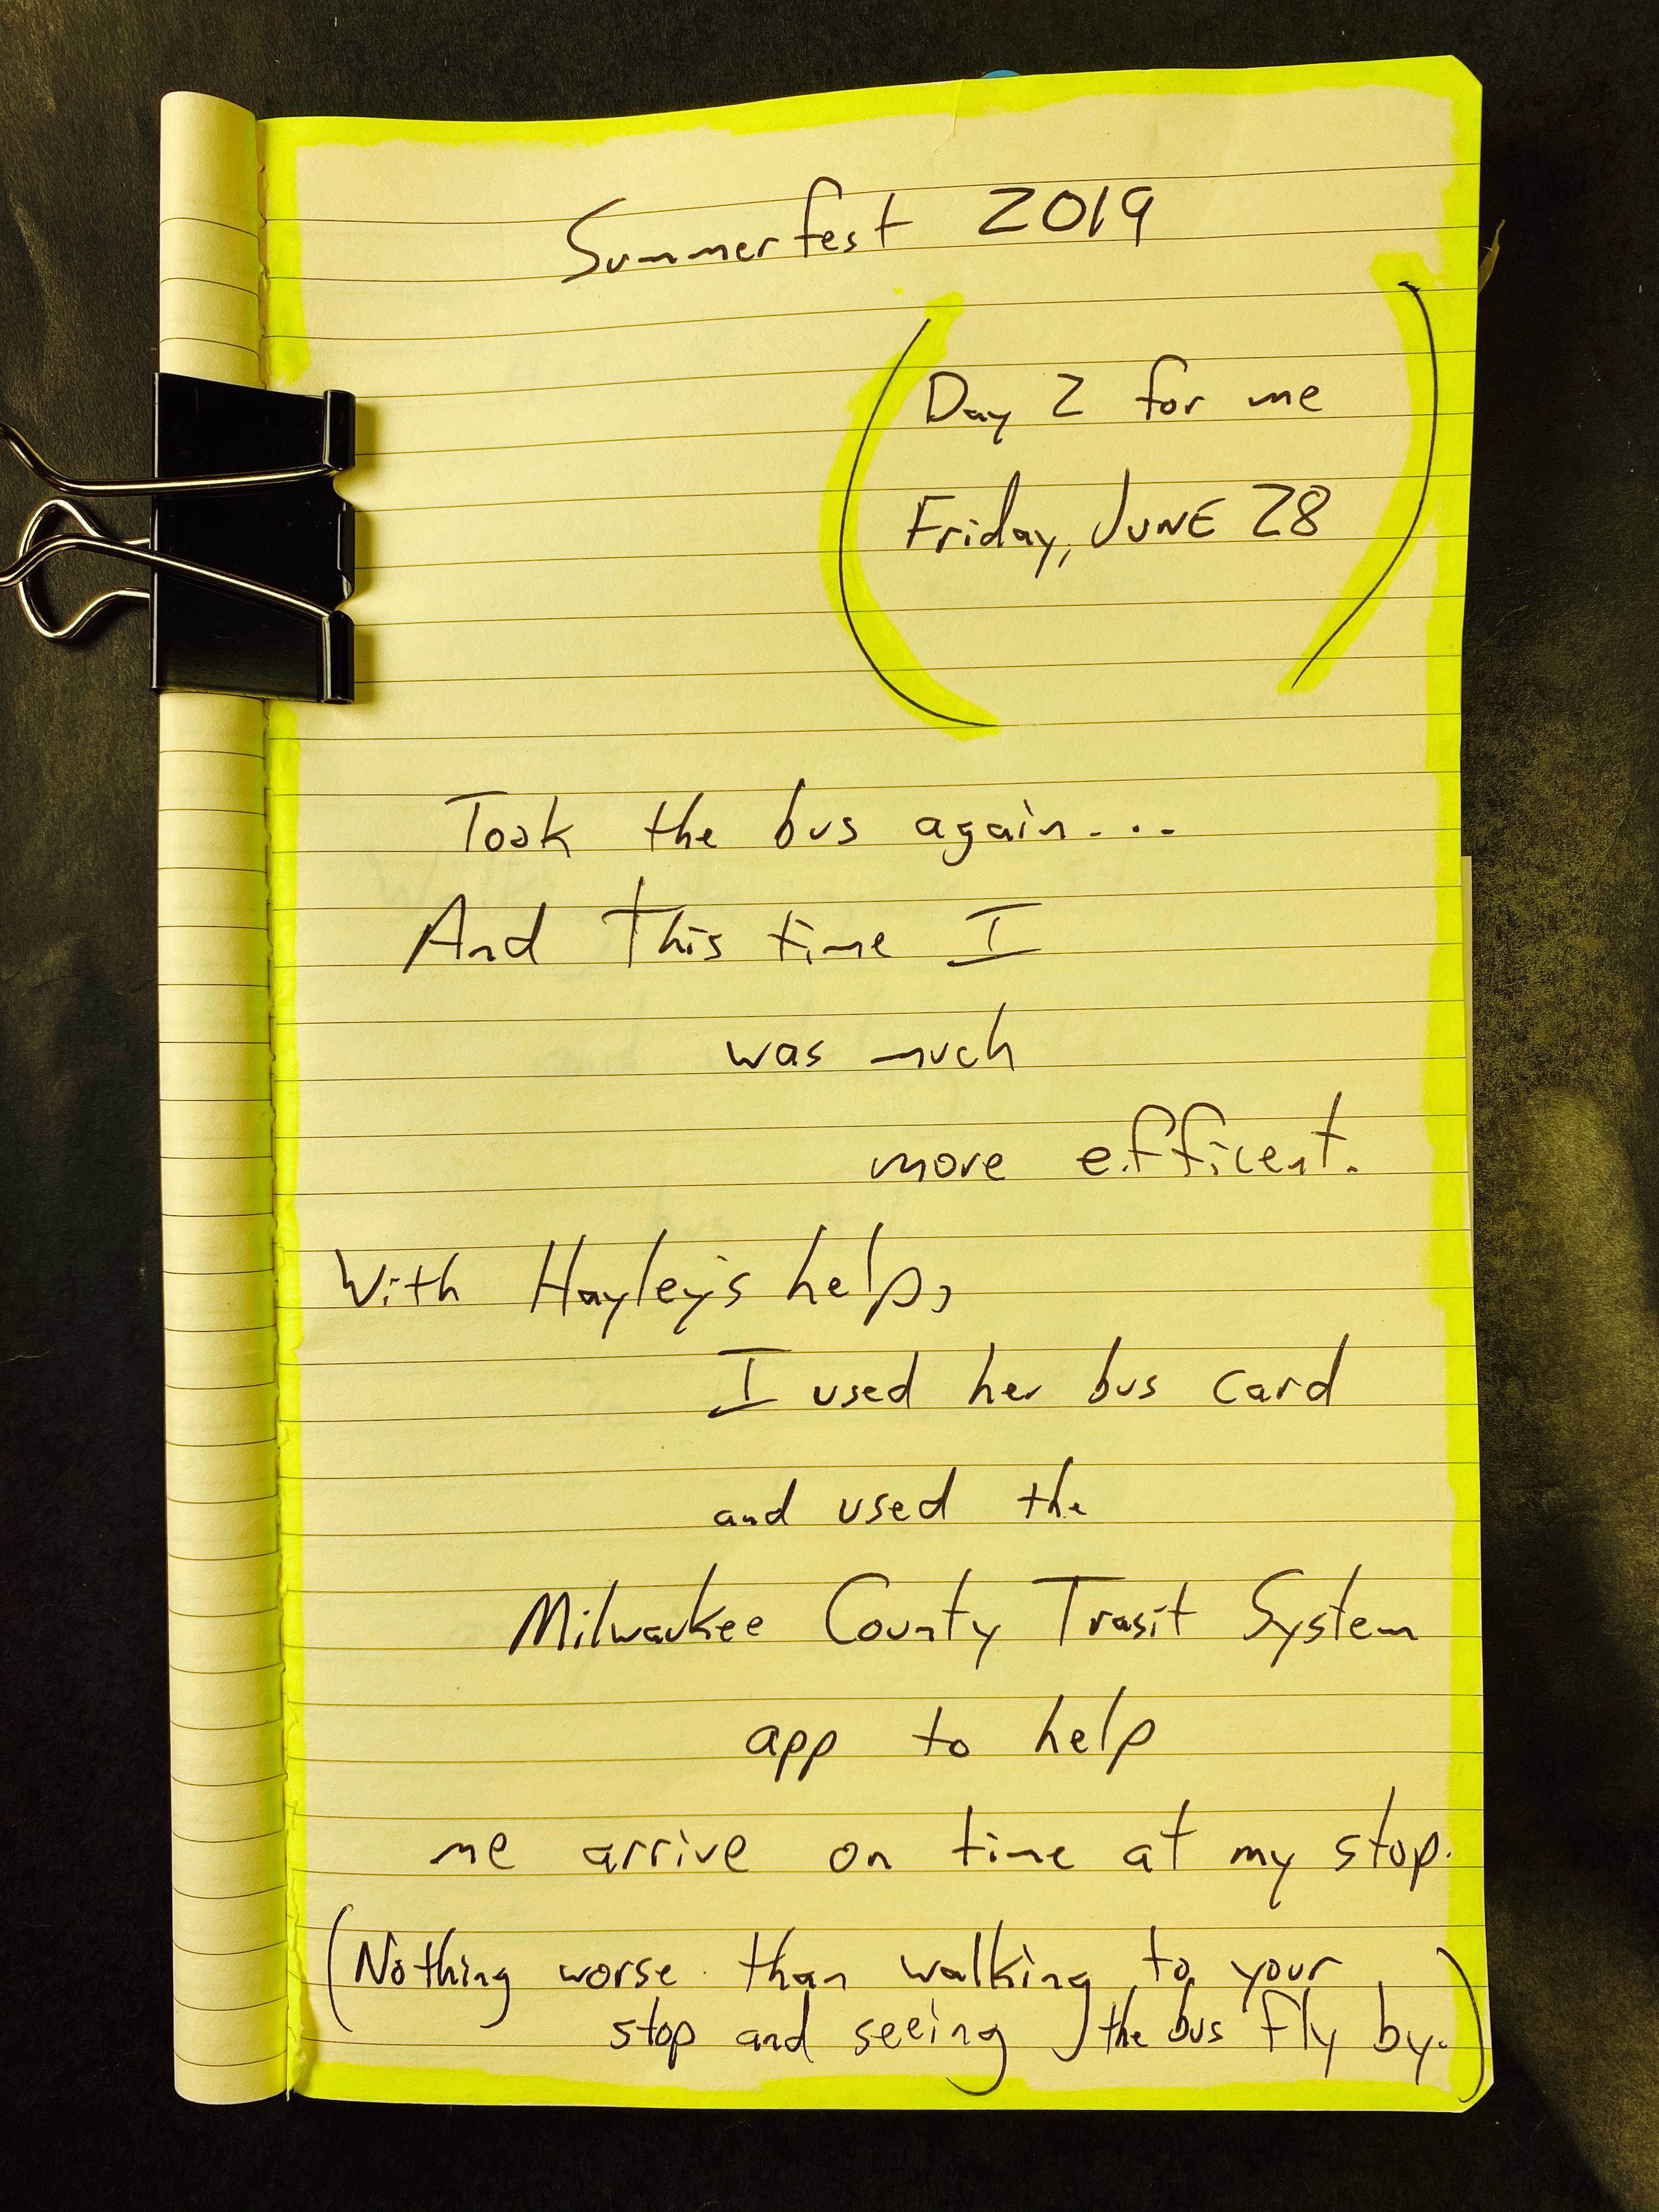 Summerfest 2019
(Day 2 for me
Friday, JUNE 28)
Took the bus again....
And this time I
was much
more efficent.
With Hayley's help,
I used her bus card
and used the
Milwaukee County Trasit System
app to help
me arrive on time at my stop.
(Nothing worse than walking to your
stop and seeing the bus fly by.)